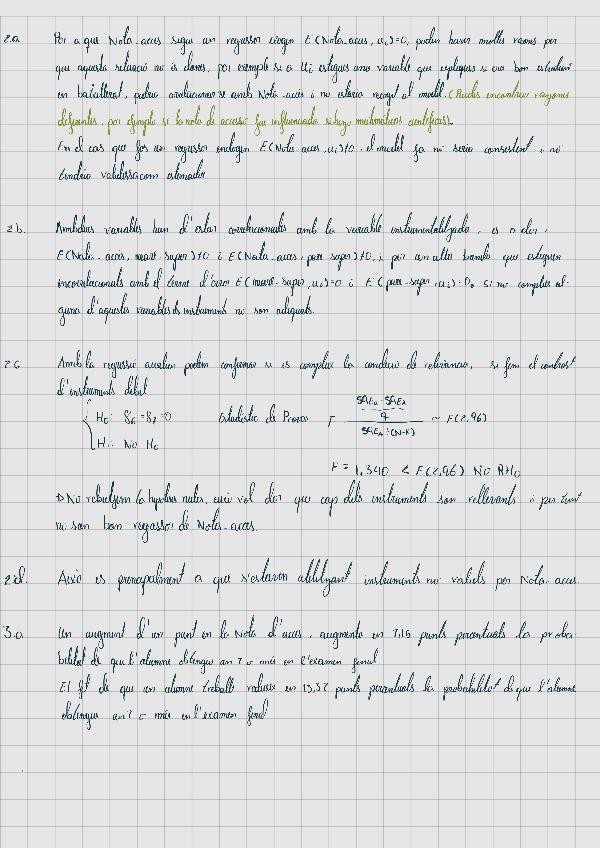 2.a Per a que Nota-acces sigui un regressor exogen E(Nota-acces, ui)=0, poden haver moltes raons per
que aquesta situació no és dona, per exemple si a Ui estigues una variable que expliques si era bon estudiant
en batxillerat, podria correlacionar-se amb Nota-acces i no estaria recogit al model. (Pueles encontrar razones
diferentes, por ejemplo si la nota de acceso fue influenciada si hizo matemáticas científicas).
En el cas que fos un regressor endogen E(Nota-acces, ui)≠0, el model ja no seria consistent i no
tendria validessa com estimador
2b. Ambdues variables han d'estar correlacionades amb la variable instrumentalitzada, es a dir,
E(Nota-acces, mare-super)≠0 i E(Nota-acces, pare-super)≠0, i per un altre banda que estiguen
incorrelacionades amb el terme d'error E(mare-super, ui)=0 i E(pare-super, ui)=0. Si no compleix al-
guna d'aquestes variables els instruments no son adequats.
2.c Amb la regressió auxiliar podem confirmar si es compleix la condició de rellevancia, si fem el contrast
d'instruments debil
H0: δ6=δ7=0 Estadístic de Prova F ~ F(2,96)
H1: No H0
F = 1,340 < F(2,96) NO RH0
No rebutjem la hipotesi nula, aixó vol dir que cap dels instruments son rellevants i per tant
no son bon regressor de Nota-acces.
2.d. Això es principalment a que s'estaven utilitzant instruments no valids per Nota-acces.
3.a Un augment d'un punt en la Nota d'acces, augmenta en 7,15 punts percentuals la proba-
bilitat de que l'alumne obtingui un 7 o més en l'examen final.
El fet de que un alumne treballi redueix en 13,37 punts percentuals la probabilitat de que l'alumne
obtingue un 7 o més en l'examen final